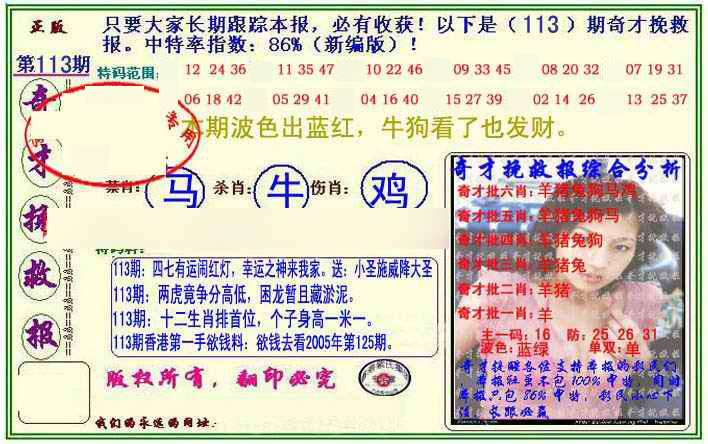 正版
只要大家长期跟踪本报，必有收获！以下是（113）期奇才挽救
报。中特率指数：86%（新编版）！
第113期
特码范围:
12 24 36  11 35 47  10 22 46  09 33 45  08 20 32  07 19 31
06 18 42  05 29 41  04 16 40  15 27 39  02 14 26  13 25 37
奇才挽救报
专用
本期波色出蓝红，牛狗看了也发财。
禁肖: 马 杀肖: 牛 伤肖: 鸡
113期：四七有运闹红灯，幸运之神来我家。送：小圣施威降大圣
113期：两虎竟争分高低，困龙暂且藏淤泥。
113期：十二生肖排首位，个子身高一米一。
113期香港第一手欲钱料：欲钱去看2005年第125期。
版权所有，翻印必究
我们的永远的网址:
奇才挽救报综合分析
奇才批六肖:羊猪兔狗马鸡
奇才批五肖:羊猪兔狗马
奇才批四肖:羊猪兔狗
奇才批三肖:羊猪兔
奇才批二肖:羊猪
奇才批一肖:羊
主一码：16 防：25 26 31
波色:蓝绿 单双:单